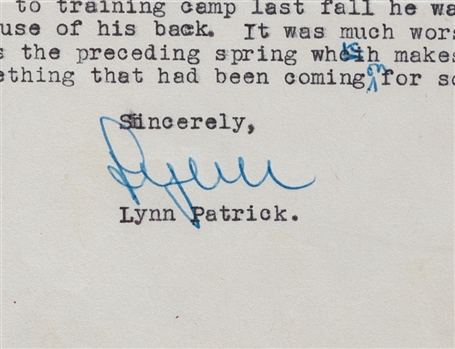 to training camp last fall he wa
use of his back. It was much wors
s the preceding spring which makes
ething that had been coming on for so
Sincerely,
Lynn
Lynn Patrick.